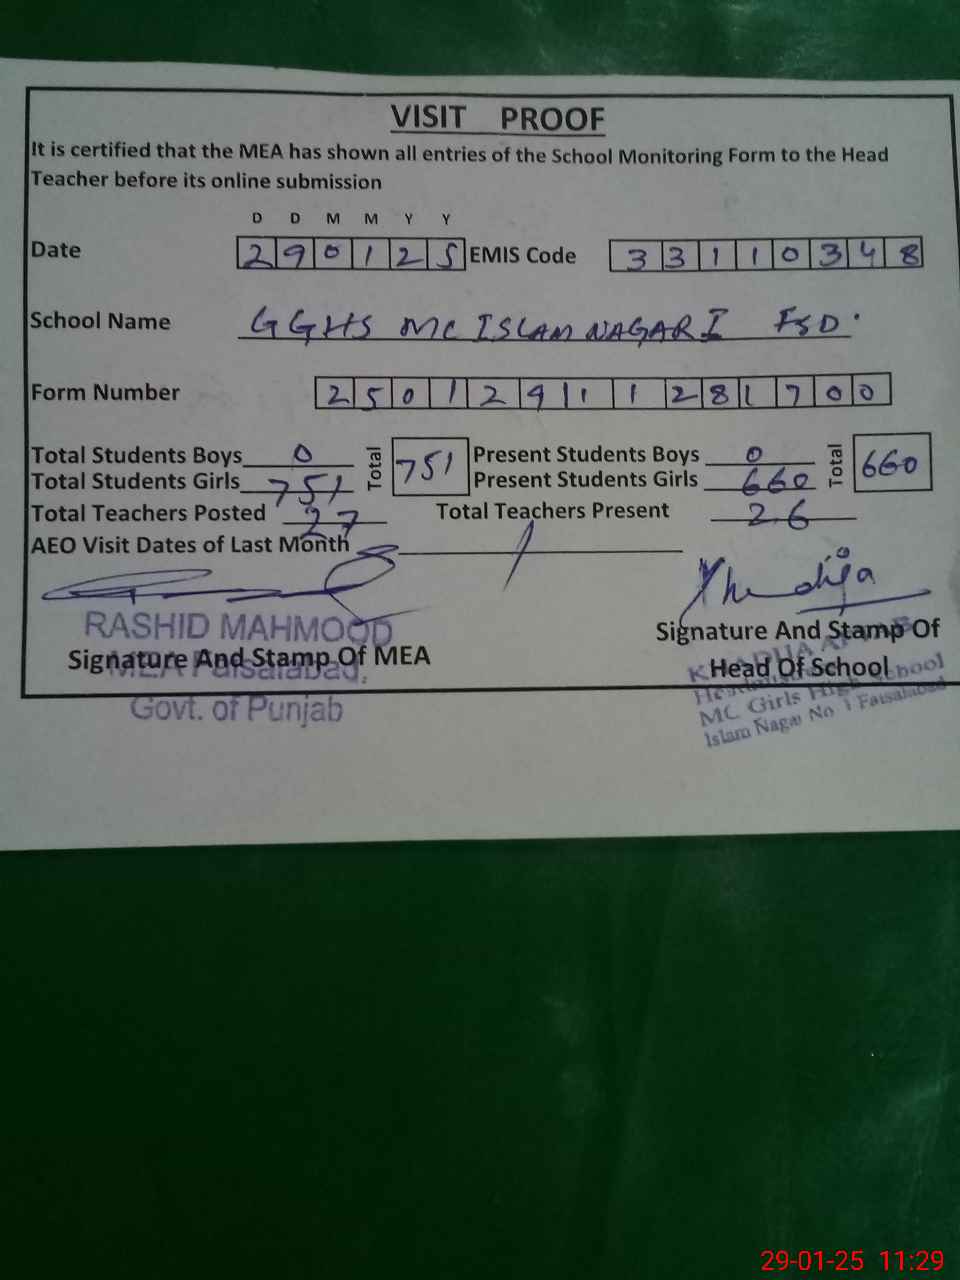 VISIT PROOF
It is certified that the MEA has shown all entries of the School Monitoring Form to the Head
Teacher before its online submission
D D M M Y Y
Date 2 9 0 1 2 5 EMIS Code 3 3 1 1 0 3 4 8
School Name GGHS MC ISLAM NAGAR I FSD.
Form Number 2 5 0 1 2 9 1 1 2 8 1 7 0 0
Total Students Boys 0 Total 751 Present Students Boys 0 Total 660
Total Students Girls 751 Present Students Girls 660
Total Teachers Posted 27 Total Teachers Present 26
AEO Visit Dates of Last Month
Khadija
RASHID MAHMOOD
Signature And Stamp Of MEA
MEA Faisalabad,
Govt. of Punjab
Signature And Stamp Of
Head Of School
MC Girls High School
Islam Nagar No 1 Faisalabad
29-01-25 11:29